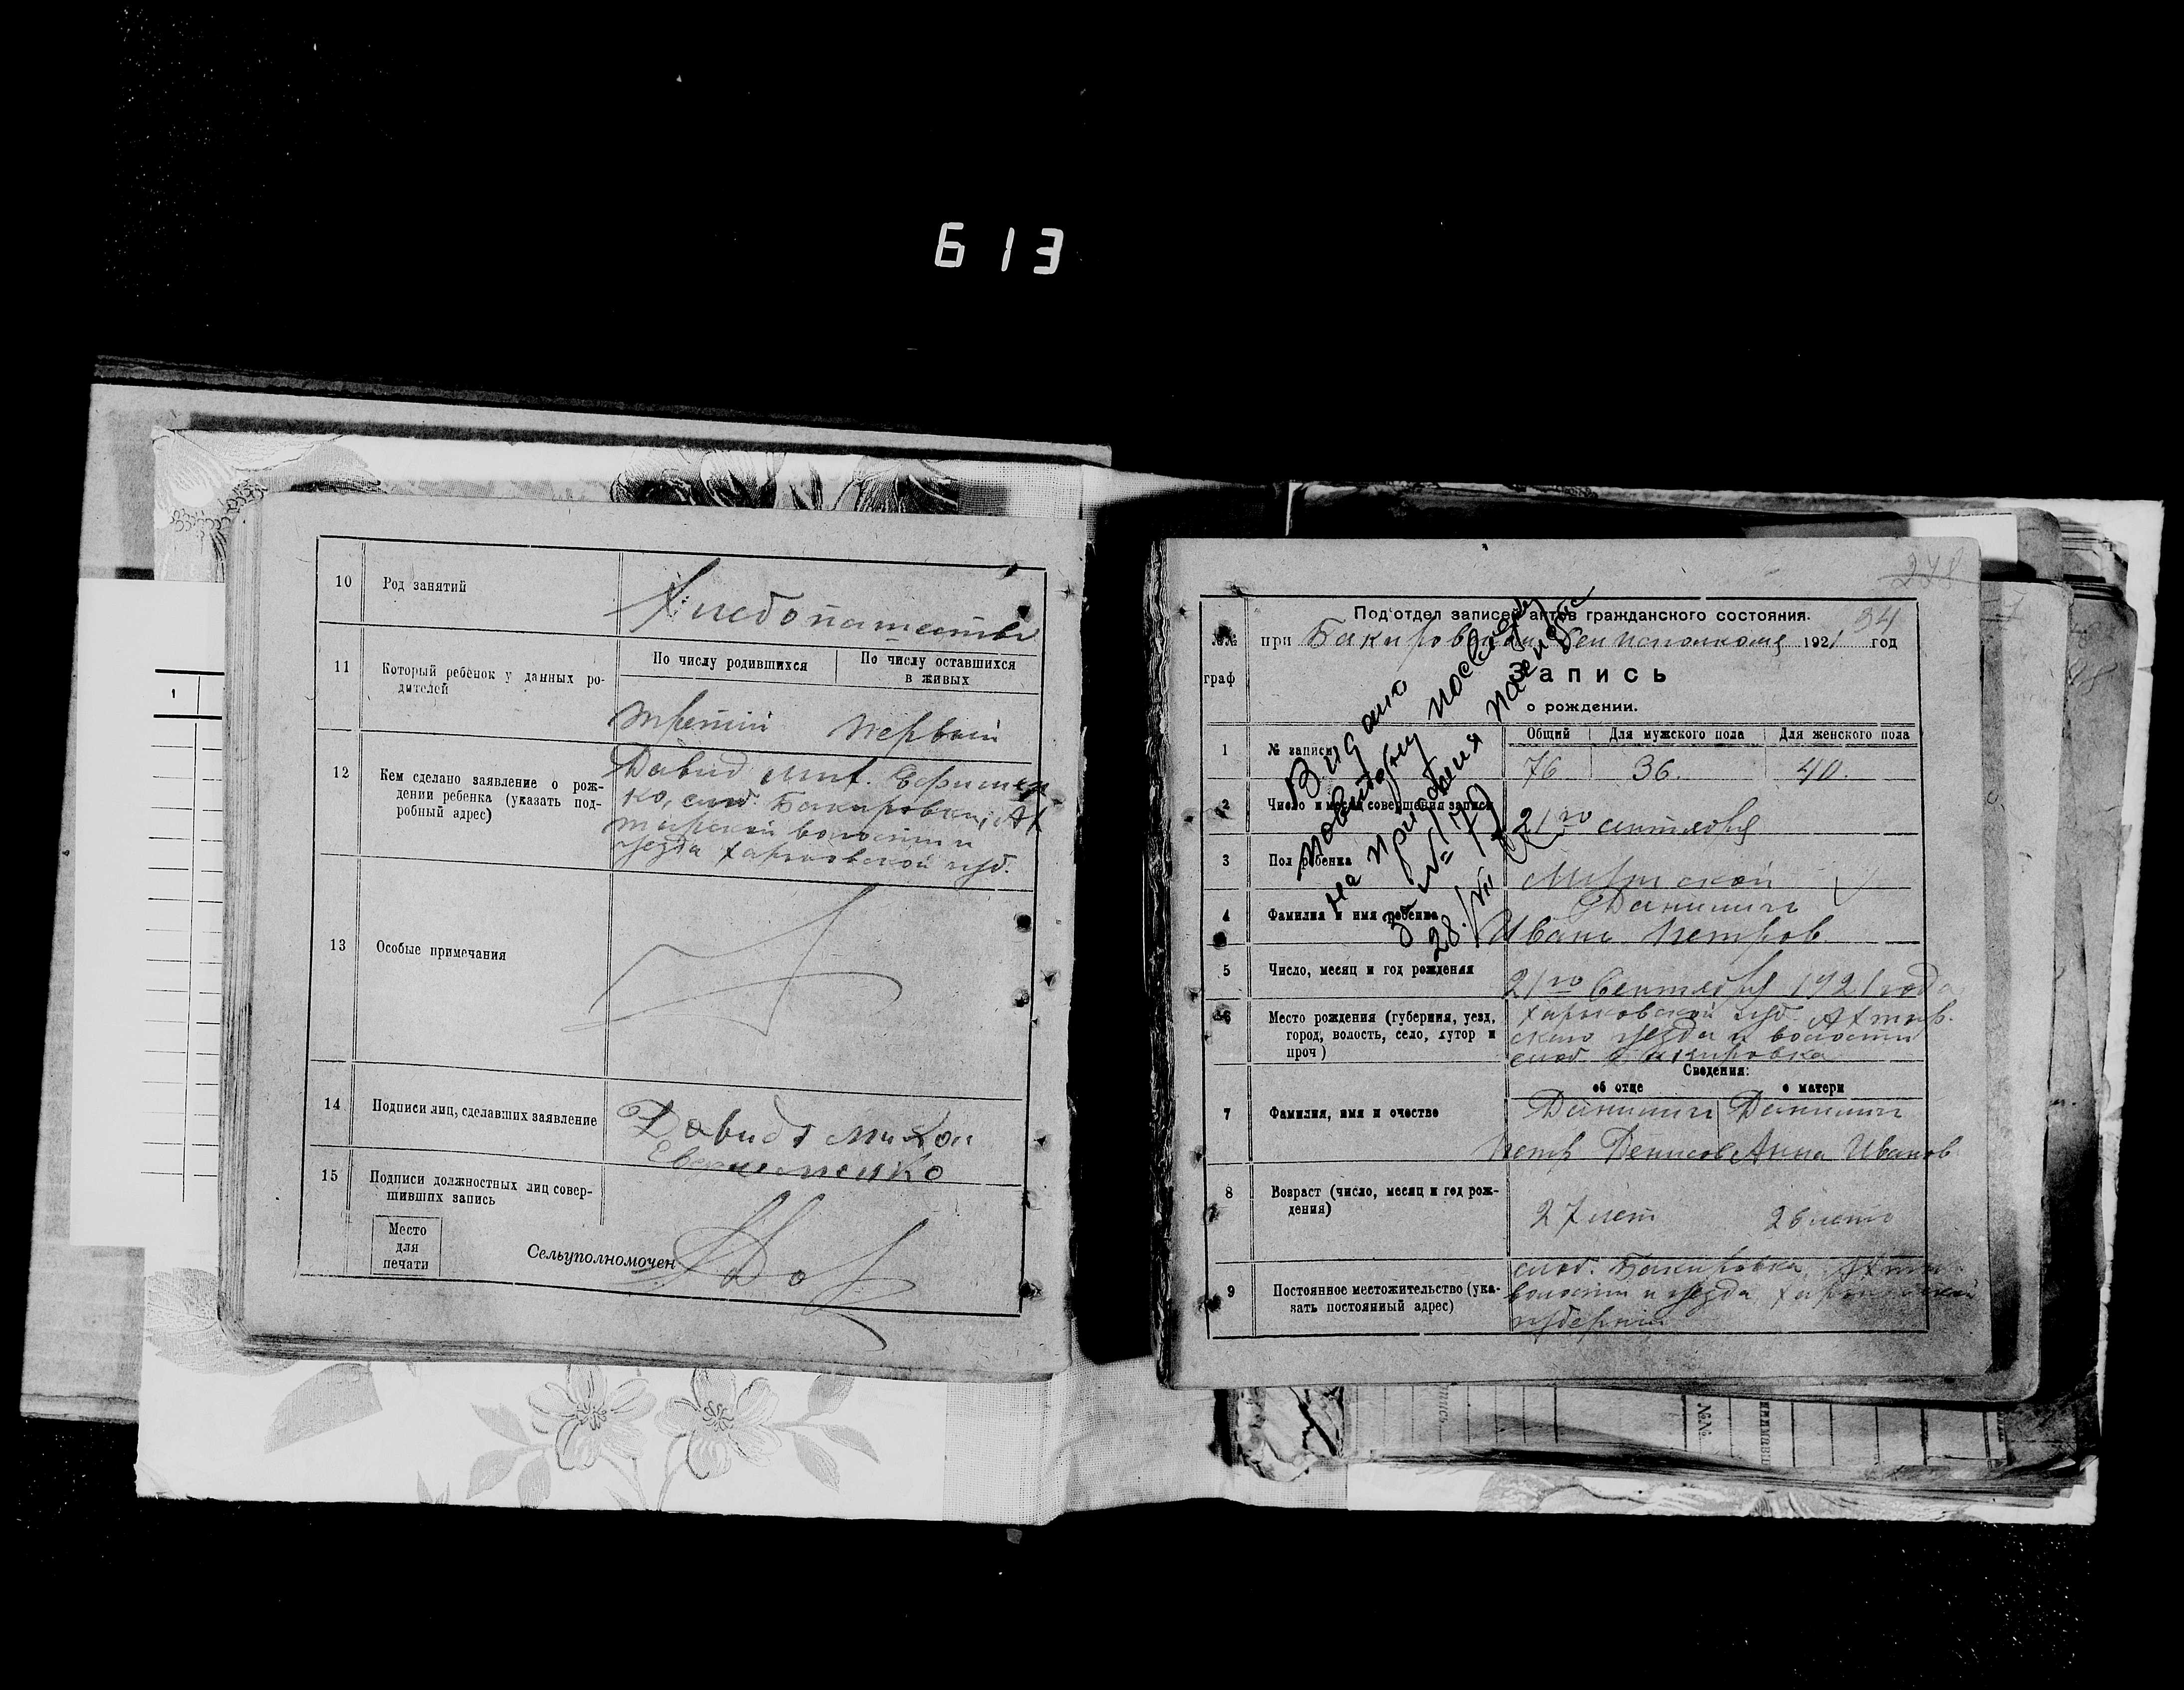 613
10 Род занятий Хлебопашество
11 Который ребенок у данных ро-
дителей
По числу родившихся По числу оставшихся
в живых
третий первый
12 Кем сделано заявление о рож-
дении ребенка (указать под-
робный адрес)
Давид Мих.
ко, слоб. Бакировки, Ах
тырской волости и
уезда Харьковской губ.
13 Особые примечания
14 Подписи лиц, сделавших заявление
Давид
15 Подписи должностных лиц совер-
шивших запись
Место
для
печати
Сельуполномочен
34
Под'отдел записей актов гражданского состояния.
№№ при Бакировском 1921 год
граф
Запись
о рождении.
1 № записи
Общий Для мужского пола Для женского пола
76 36. 40.
2 Число и месяц совершения записи 21го сентября
3 Пол ребенка Мужской
4 Фамилия и имя ребенка
Иван Петров.
5 Число, месяц и год рождения 21го Сентября 1921 года
6 Место рождения (губерния, уезд,
город, волость, село, хутор и
проч)
Харьковской губ. Ахтыр.
ского уезда и волости
слоб. Бакировка
Сведения:
об отце о матери
7 Фамилия, имя и очество
Петр Денисов Анна Иванов
8 Возраст (число, месяц и год рож-
дения)
27 лет 26 лет
9 Постоянное местожительство (ука-
зать постоянный адрес)
слоб. Бакировка, Ахтыр.
волости и уезда Харьковской
губернии
Видано
повиторну
на
за № 179
28/VII